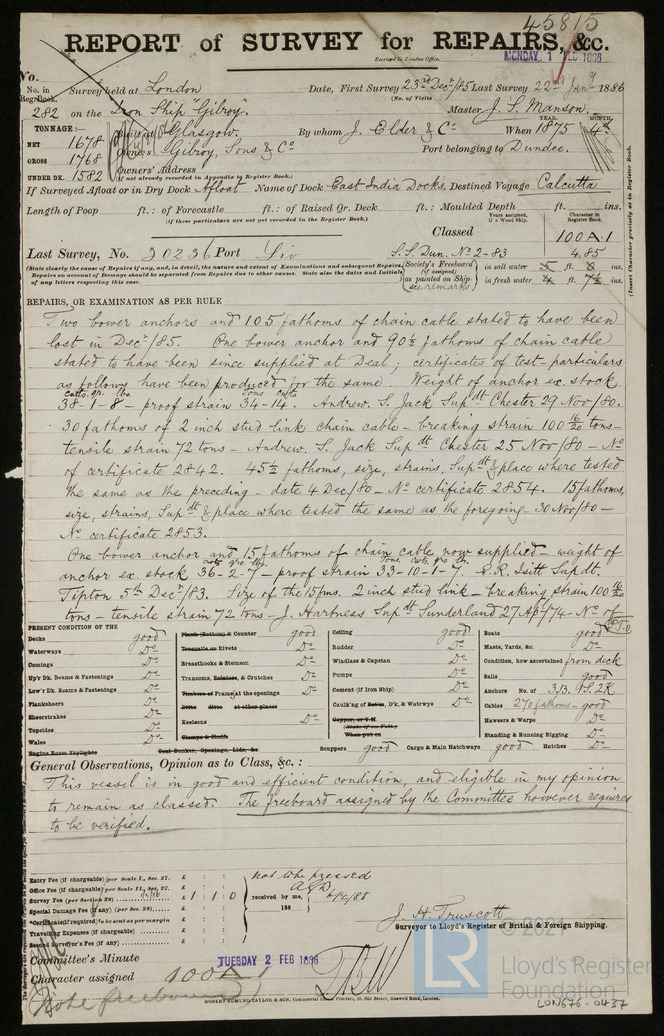 45815
REPORT of SURVEY for REPAIRS, &c.
Received in London Office.
MONDAY 1 FEB 1886
No.
No. in Reg. Book.
Survey held at London Date, First Survey 23rd Decr/85 Last Survey 22nd Jany 1886
(No. of Visits
282 on the Iron Ship "Gilroy". Master J. S. Manson.
TONNAGE:—
YEAR. MONTH.
NET 1678 Glasgow. By whom J. Elder & Co When 1875 4th
GROSS 1768 Owners Gilroy, Sons & Co Port belonging to Dundee.
UNDER DK. 1582 Owners' Address
(if not already recorded in Appendix to Register Book.)
If Surveyed Afloat or in Dry Dock Afloat Name of Dock East India Docks. Destined Voyage Calcutta
Length of Poop ft.: of Forecastle ft.: of Raised Qr. Deck ft.: Moulded Depth ft. ins.
(if these particulars are not yet recorded in the Register Book.)
Years assigned, if a Wood Ship.
Character in Register Book.
Classed 100A.1
Last Survey, No. 30236 Port Liv S.S. Dun. No 2-83 4.85
(State clearly the cause of Repairs if any, and, in detail, the nature and extent of Examinations and subsequent Repairs.
Repairs on account of Damage should be separated from Repairs due to other causes. State also the dates and Initials of any letters respecting this case.
Society's Freeboard (if assigned) as painted on Ship see remarks
in salt water 5 ft. 8 ins.
in fresh water 4 ft. 7½ ins.
(Insert Character precisely as in Register Book.)
REPAIRS, OR EXAMINATION AS PER RULE
Two bower anchors and 105 fathoms of chain cable stated to have been
lost in Decr/85. One bower anchor and 90½ fathoms of chain cable
stated to have been since supplied at Deal; certificates of test-particulars
as follows have been produced for the same Weight of anchor ex. stock
cwts. qr. lbs tons cwts
38-1-8 - proof strain 34-14. Andrew. S. Jack Supdt Chester 29 Nov/80.
30 fathoms of 2 inch stud link chain cable - breaking strain 100 16/20 tons -
tensile strain 72 tons - Andrew. S. Jack Supdt Chester 25 Nov/80 - No
of certificate 2842. 45½ fathoms, size, strains, Supdt & place where tested
the same as the preceding - date 4 Dec/80 - No certificate 2854. 15 fathoms,
size, strains, Supdt & place where tested the same as the foregoing - 30 Nov/80 -
No certificate 2853.
One bower anchor and 15 fathoms of chain cable now supplied - weight of
cwts qrs lbs. Tons. cwts. qrs. lb.
anchor ex. stock 36-2-7 - proof strain 33-10-1-7. R. R. Isitt Supdt.
Tipton 5th Decr/83. Size of the 15fms. 2 inch stud link - breaking strain 100 16/20
tons - tensile strain 72 tons - J. Hartness Supdt Sunderland 27 Ap/74 - No of
P.T.O
PRESENT CONDITION OF THE
Decks good
Waterways Do
Comings Do
Up'r Dk. Beams & Fastenings Do
Low'r Dk. Beams & Fastenings Do
Planksheers Do
Sheerstrakes Do
Topsides Do
Wales Do
Engine Room Skylights
Plank (Bottom) & Counter good
Treenails or Rivets Do
Breasthooks & Stemson Do
Transoms, Pointers, & Crutches Do
Timbers or Frames at the openings Do
Ditto ditto at other places
Keelsons Do
Clamps & Shelfs
Coal Bunker, Openings, Lids, &c.
Ceiling good
Rudder Do
Windlass & Capstan Do
Pumps Do
Cement (if Iron Ship) Do
Caulk'ng of Bot'm, D'k, & Watrwys Do
Copper, or Y.M
(State if on Felt)
When put on
Scuppers good Cargo & Main Hatchways good Hatches Do
Boats good
Masts, Yards, &c. Do
Condition, how ascertained from deck
Sails good
Anchors No. of 3B. 1S. 2K
Cables 270 fathoms - good
Hawsers & Warps Do
Standing & Running Rigging Do
General Observations, Opinion as to Class, &c.:
This vessel is in good and efficient condition, and eligible in my opinion
to remain as classed. The freeboard assigned by the Committee however requires
to be verified.
Entry Fee (if chargeable) per Scale I., Sec. 27. £ : :
Office Fee (if chargeable) per Scale II., Sec. 27. £ : :
Survey Fee (per Section 28) £ 1 : 1 : 0
Special Damage Fee (if any) (per Sec. 28). £ : :
*Certificate (if required) to be sent as per margin
Travelling Expenses (if chargeable) £ : :
Second Surveyor's Fee (if any) £ : :
not to be pressed
received by me,
188
J. H. Truscott
Surveyor to Lloyd's Register of British & Foreign Shipping.
Committee's Minute TUESDAY 2 FEB 1886
Character assigned 100A1
Note freeboard
ROBERT EDMUND TAYLOR & SON, Commercial Steam Printers, 19, Old Street, Goswell Road, London.
© 2021
LR
Lloyd's Register
Foundation
LON676-0437